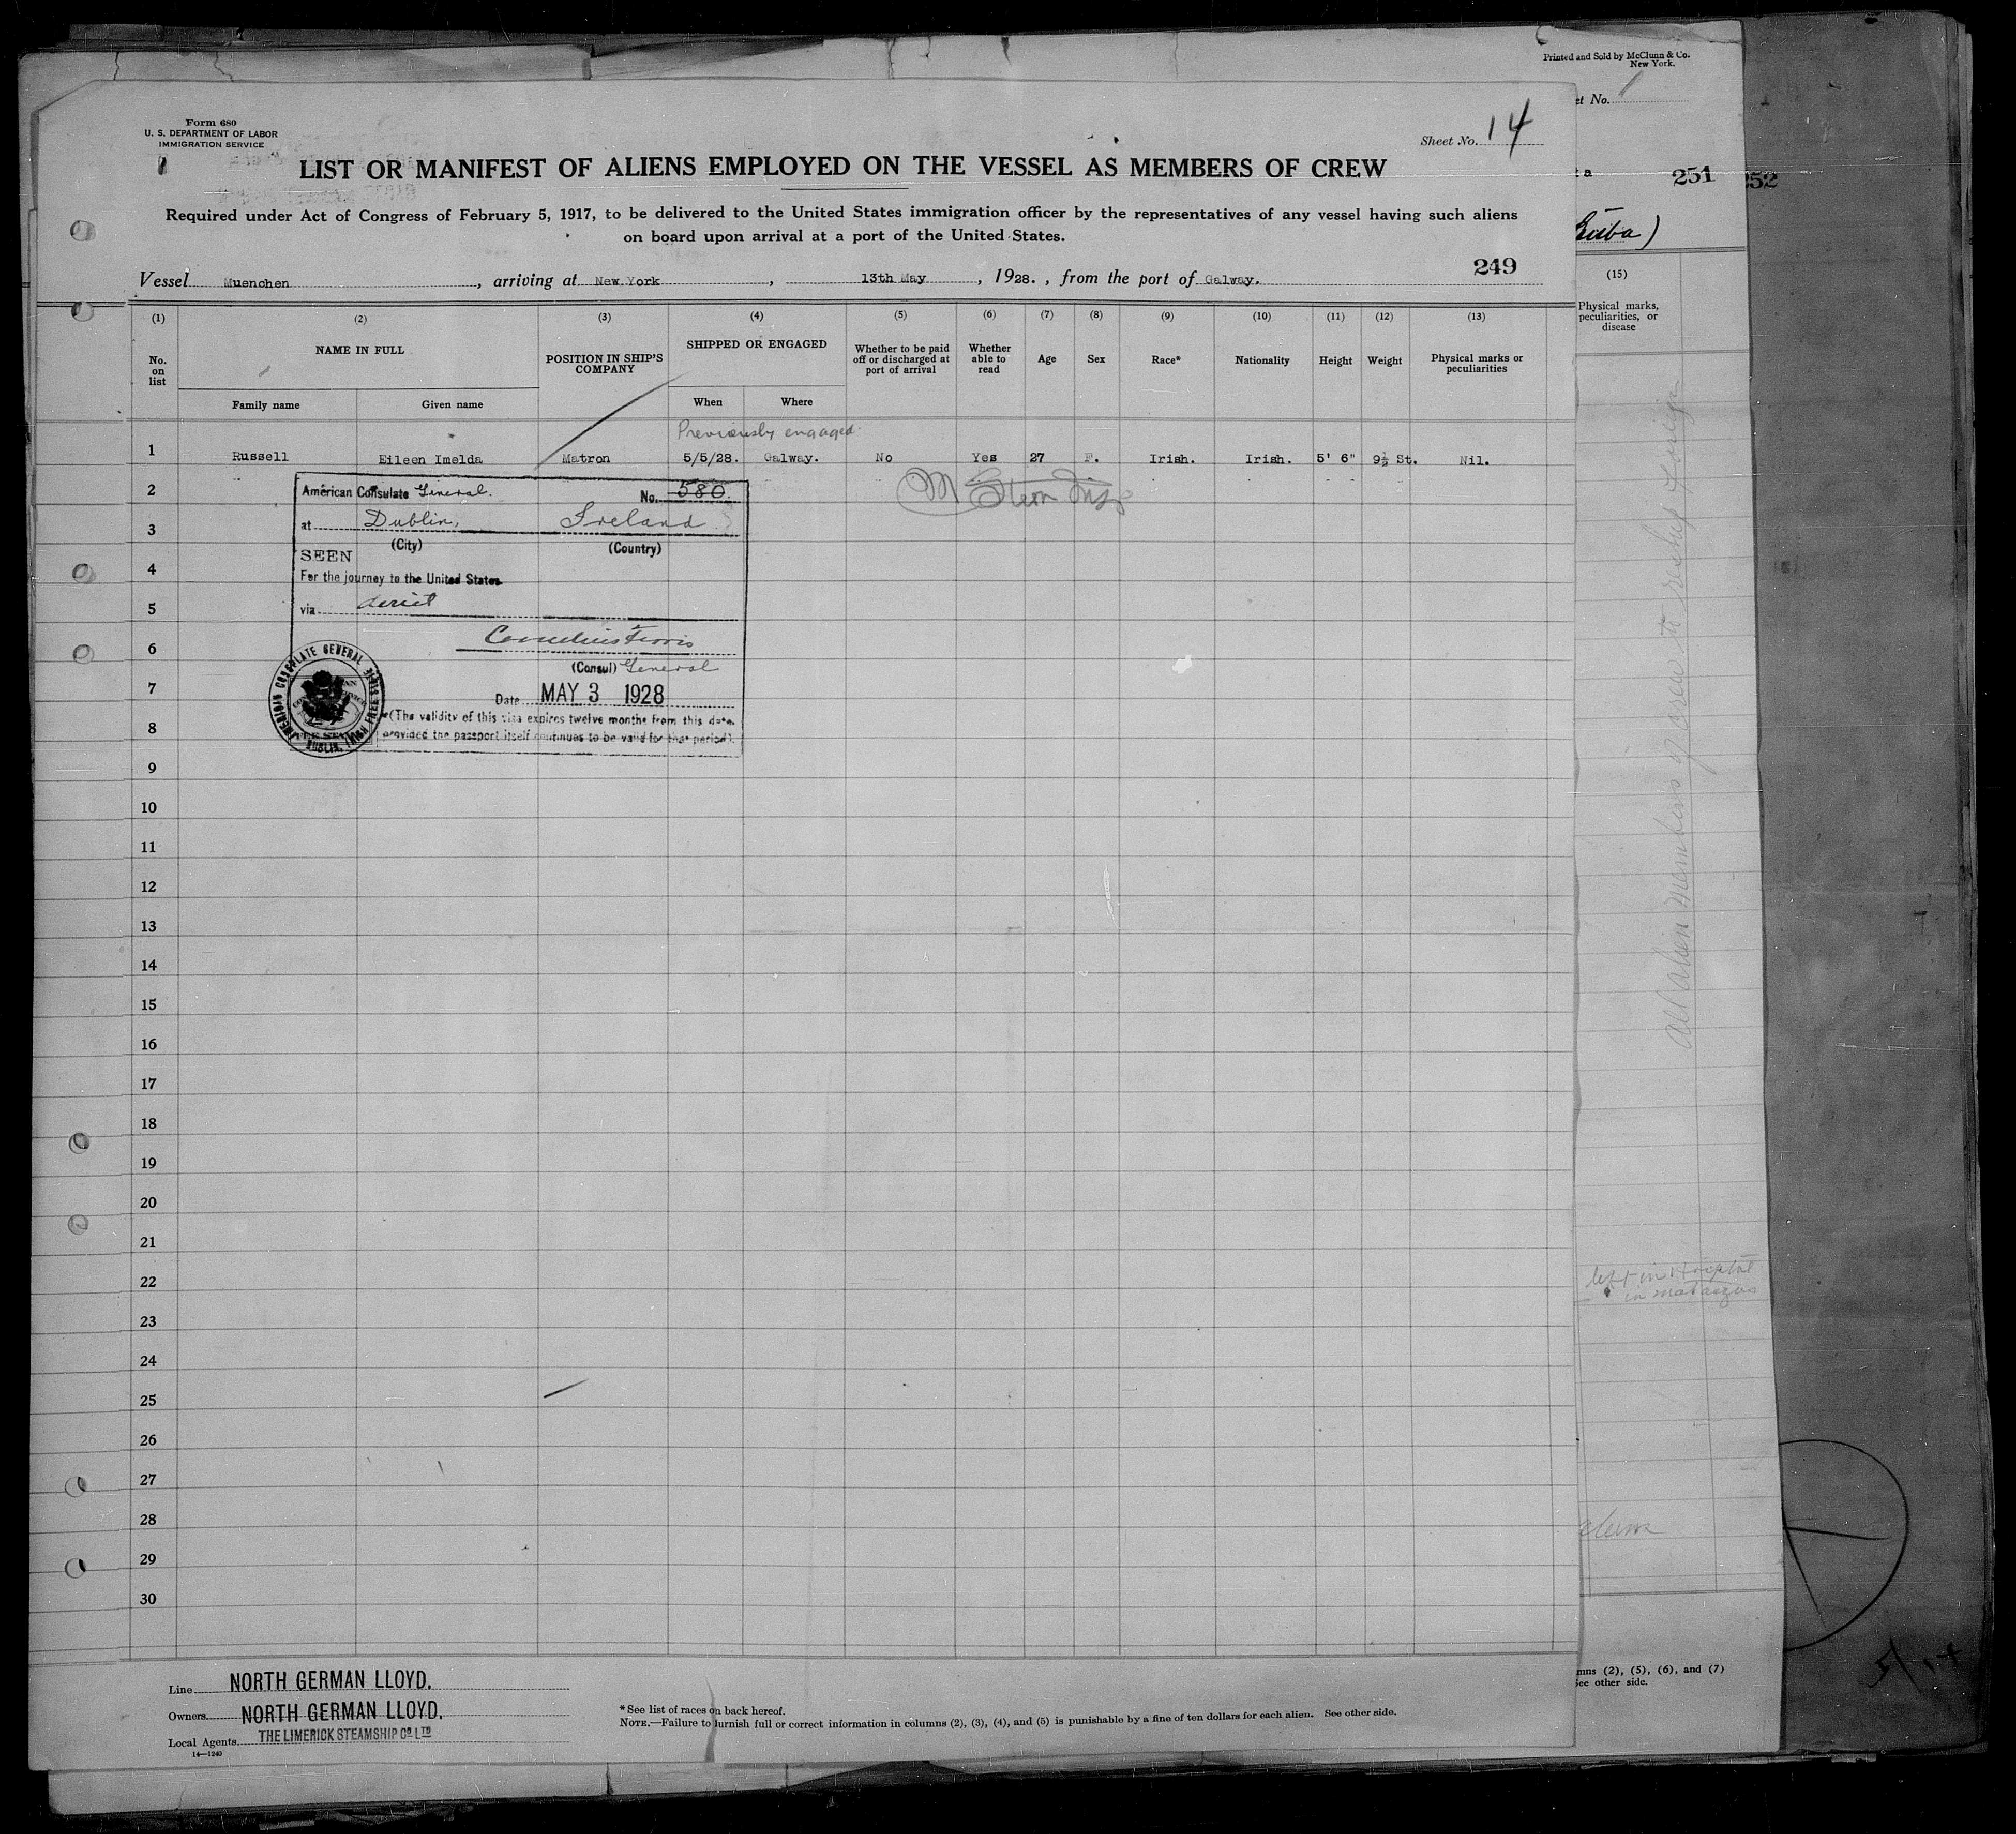 Printed and Sold by McClunn & Co.
New York.
et No. 1
251
252
Cuba)
(15)
Physical marks,
peculiarities, or
disease
Form 680
U. S. DEPARTMENT OF LABOR
IMMIGRATION SERVICE
Sheet No. 14
LIST OR MANIFEST OF ALIENS EMPLOYED ON THE VESSEL AS MEMBERS OF CREW
Required under Act of Congress of February 5, 1917, to be delivered to the United States immigration officer by the representatives of any vessel having such aliens
on board upon arrival at a port of the United States.
249
Vessel Muenchen, arriving at New York, 13th May, 1928., from the port of Galway.
(1) (2) (3) (4) (5) (6) (7) (8) (9) (10) (11) (12) (13)
No. on list
NAME IN FULL
Family name
Given name
POSITION IN SHIP'S COMPANY
SHIPPED OR ENGAGED
When
Where
Whether to be paid off or discharged at port of arrival
Whether able to read
Age
Sex
Race*
Nationality
Height
Weight
Physical marks or peculiarities
Previously engaged
1 Russell Eileen Imelda Matron 5/5/28. Galway. No Yes 27 F. Irish. Irish. 5' 6" 9½ St. Nil.
2
3
4
5
6
7
8
9
10
11
12
13
14
15
16
17
18
19
20
21
22
23
24
25
26
27
28
29
30
American Consulate General. No. 580.
at Dublin, Ireland
(City) (Country)
SEEN
For the journey to the United States
via direct
Cornelius Ferris
(Consul) General
Date MAY 3 1928
*(The validity of this visa expires twelve months from this date,
provided the passport itself continues to be valid for that period).
AMERICAN CONSULATE GENERAL
DUBLIN, IRISH FREE STATE
All alien members of crew to reship foreign
left in Hospital
in Matanzas
mns (2), (5), (6), and (7)
See other side.
Line NORTH GERMAN LLOYD.
Owners NORTH GERMAN LLOYD.
Local Agents THE LIMERICK STEAMSHIP Co LTD
14—1240
*See list of races on back hereof.
NOTE.—Failure to furnish full or correct information in columns (2), (3), (4), and (5) is punishable by a fine of ten dollars for each alien. See other side.